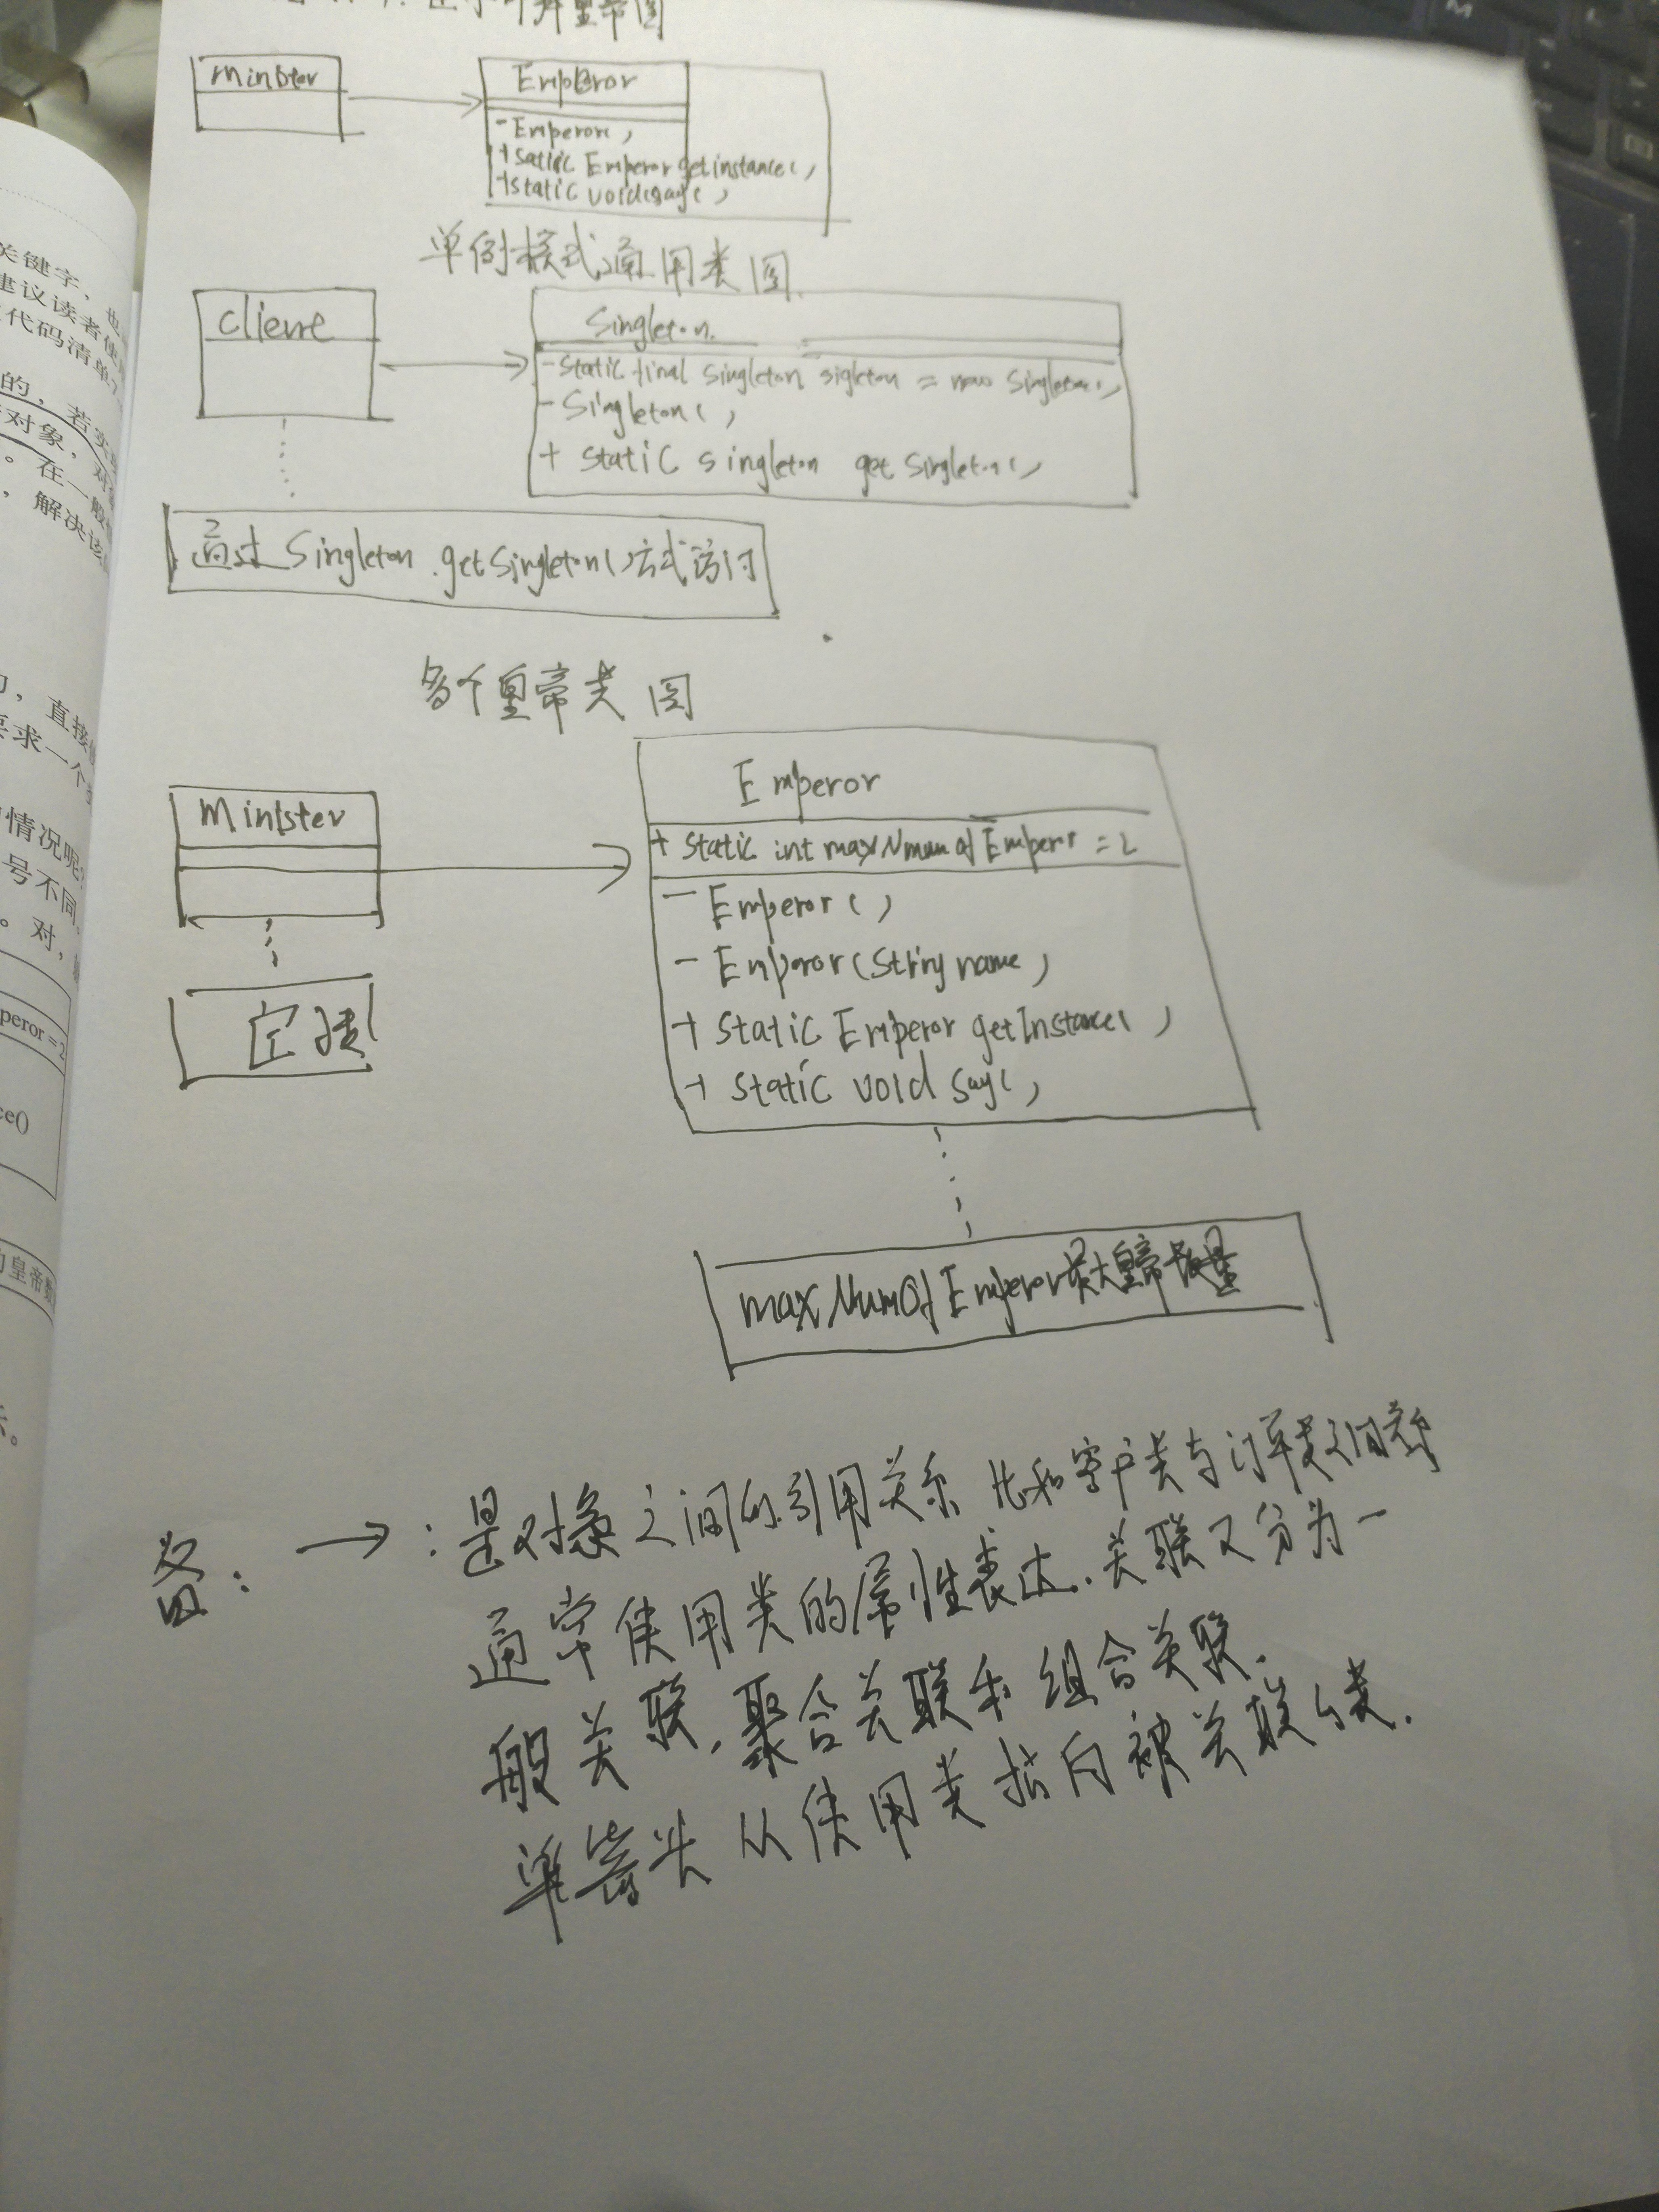 皇帝图
Minister
Emperor
- Emperor()
+ Satic Emperor getinstance()
+ static void say()
单例模式通用类图
client
Singleton
- static final Singleton sigleton = new Singleton()
- Singleton()
+ static singleton getSingleton()
通过 Singleton.getSingleton()方式访问
多个皇帝类图
Minister
Emperor
+ static int maxNmumOfEmperor = 2
- Emperor()
- Emperor(String name)
+ static Emperor getInstance()
+ static void say()
maxNumOfEmperor最大皇帝数量
备: → : 是对象之间的引用关系 比如客户类与订单类之间关系
通常使用类的属性表达. 关联又分为一
般关联, 聚合关联和组合关联.
单箭头从使用类指向被关联的类.
关键字, 也
建议读者使
代码清单7
的, 若实
对象, 对
。在一般
, 解决该
, 直接
要求一个
情况呢
号不同
。对,
peror = 2
ce()
皇帝数